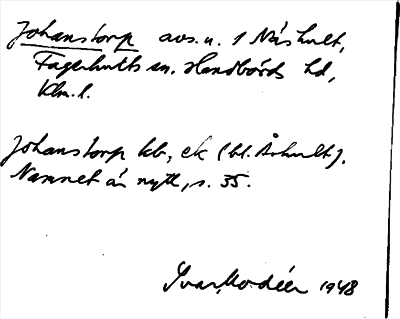 Johanstorp avs. u. 1 Näshult,
Fagerhults sn. Handbörds hd,
Klm. l.
Johanstorp kb, ek (bl. Århult).
Namnet är nytt, s. 35.
Ivar Modéer 1948